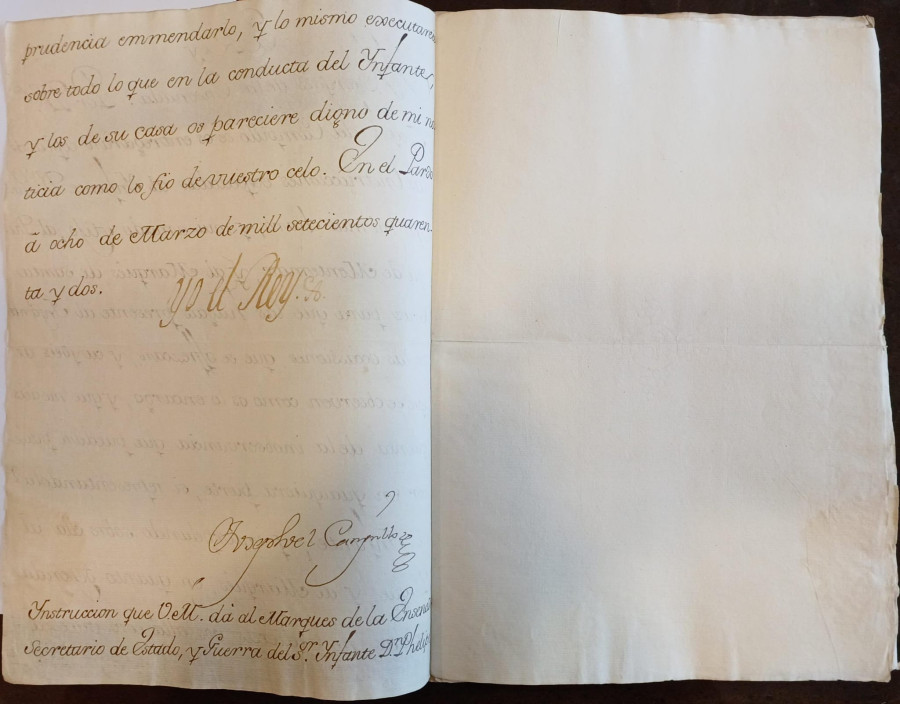 prudencia emmendarlo, y lo mismo executareis
sobre todo lo que en la conducta del Ynfante,
y los de su casa os pareciere digno de mi no
ticia como lo fio de vuestro celo. En el Pardo
â ocho de Marzo de mill setecientos quaren-
ta y dos.
yo el Rey.
Joseph del Campillo
Ynstruccion que V.M. dà al Marques de la Ensenada
Secretario de Estado, y Guerra del S.r Ynfante D.n Phelipe